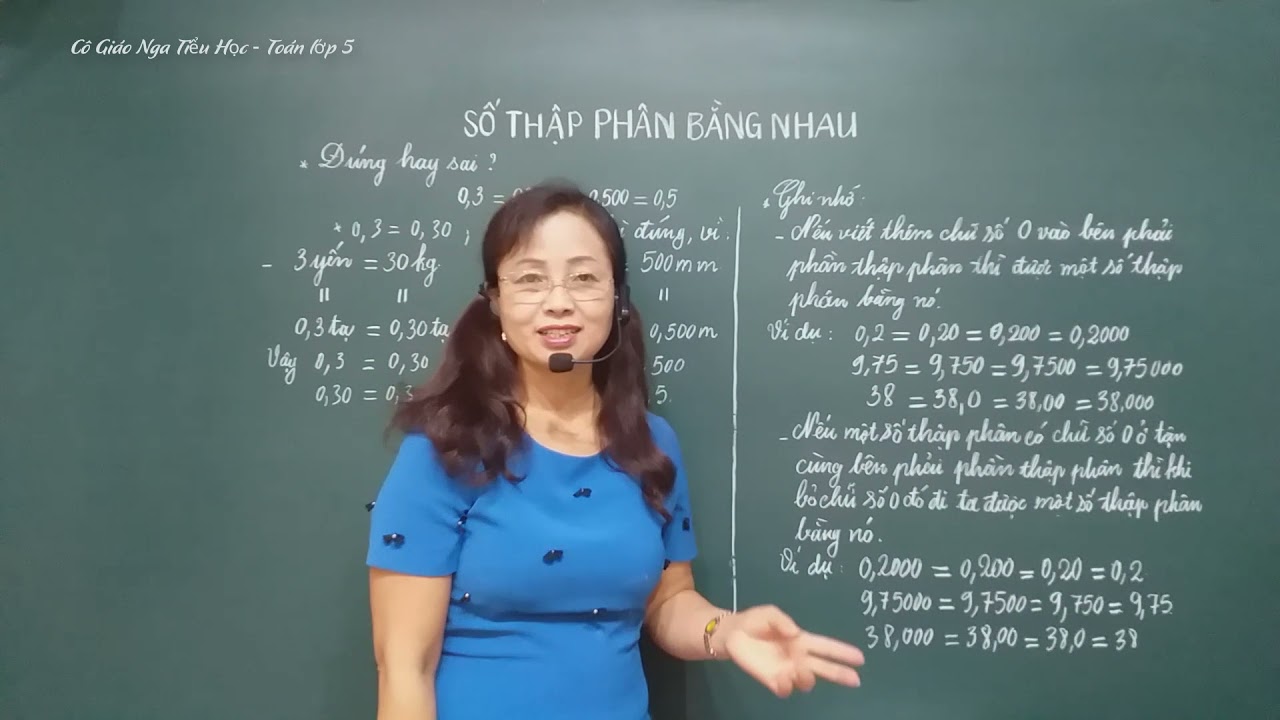 Cô Giáo Nga Tiểu Học - Toán lớp 5
SỐ THẬP PHÂN BẰNG NHAU
* Đúng hay sai ?
0,3 = 0,500 = 0,5
* 0,3 = 0,30 ; đúng, vì.
- 3 yến = 30 kg 500 mm
= = =
0,3 tạ = 0,30 tạ 0,500 m
Vậy 0,3 = 0,30 500
0,30 = 0,3 5
* Ghi nhớ:
- Nếu viết thêm chữ số 0 vào bên phải
phần thập phân thì được một số thập
phân bằng nó.
Ví dụ: 0,2 = 0,20 = 0,200 = 0,2000
9,75 = 9,750 = 9,7500 = 9,75000
38 = 38,0 = 38,00 = 38,000
- Nếu một số thập phân có chữ số 0 ở tận
cùng bên phải phần thập phân thì khi
bỏ chữ số 0 đó đi ta được một số thập phân
bằng nó.
Ví dụ: 0,2000 = 0,200 = 0,20 = 0,2
9,75000 = 9,7500 = 9,750 = 9,75
38,000 = 38,00 = 38,0 = 38